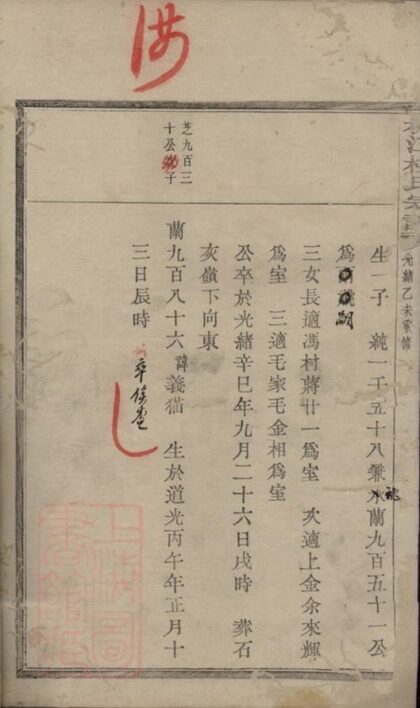 光緒乙未重修
芝九百三
十公子
生一子 純一千五十八兼祧蘭九百五十一公
爲嗣
三女長適馮村蔣廿一爲室 次適上金余來輝
爲室 三適毛家毛金相爲室
公卒於光緒辛巳年九月二十六日戌時 葬石
亥嶺下向東
蘭九百八十六諱義猫 生於道光丙午年正月十
三日辰時
上海圖書館藏